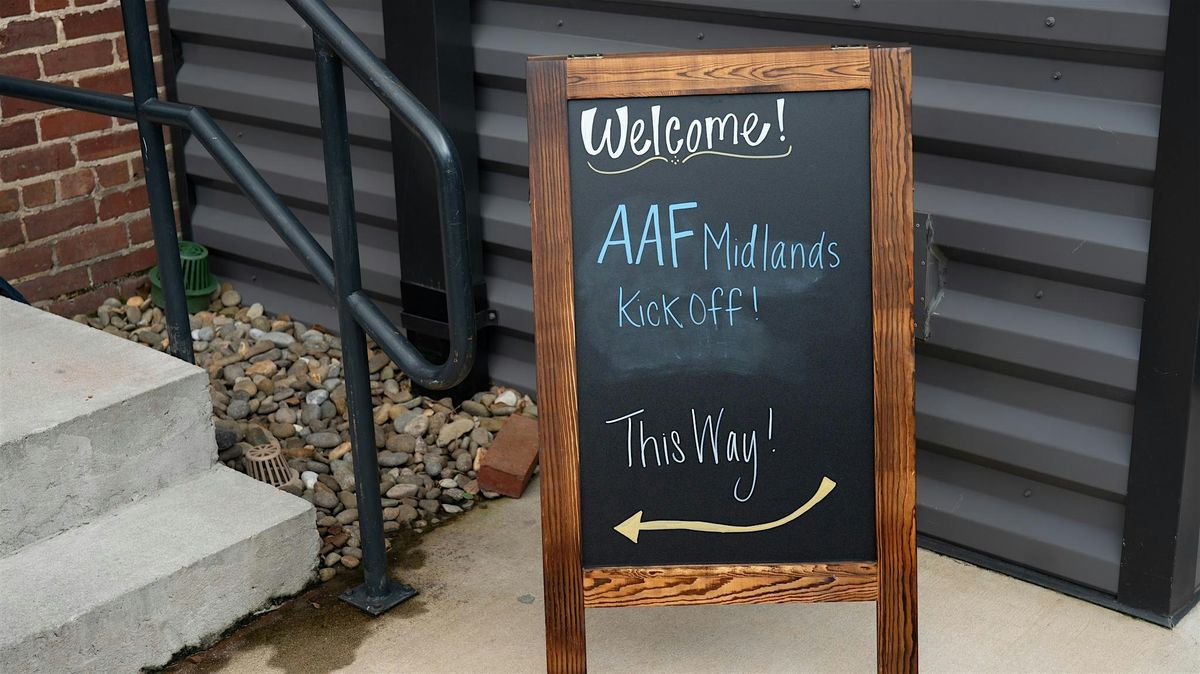 Welcome!
AAF Midlands
Kick Off!
This Way!